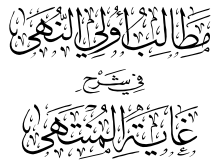 مَطَالِبُ أُولِي النُّهَى
فِي شَرْحِ
غَايَةِ الْمُنْتَهَى